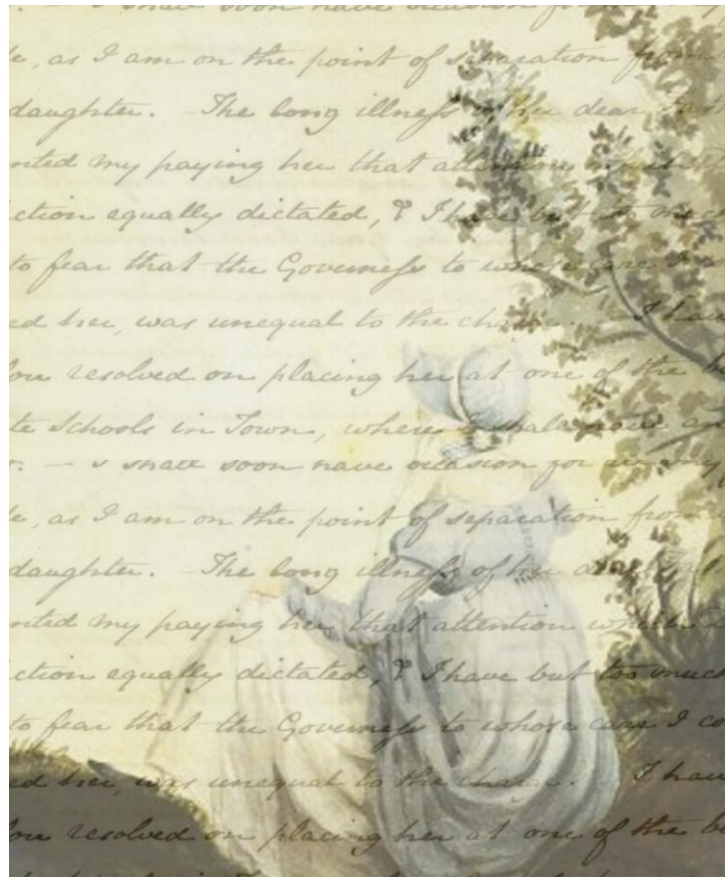 . — I shall soon have occasion for
, as I am on the point of separation from
daughter. The long illness of her dear
nted my paying her that attention
ction equally dictated, & I have but too
to fear that the Governess to whose care I
ed her, was unequal to the charge. I have
resolved on placing her at one of the b
te Schools in Town, where I shall have
. — I shall soon have occasion for
, as I am on the point of separation from
daughter. The long illness of her dear
nted my paying her that attention which
ction equally dictated, & I have but too much
to fear that the Governess to whose care I co
ed her, was unequal to the charge. I have
resolved on placing her at one of the b